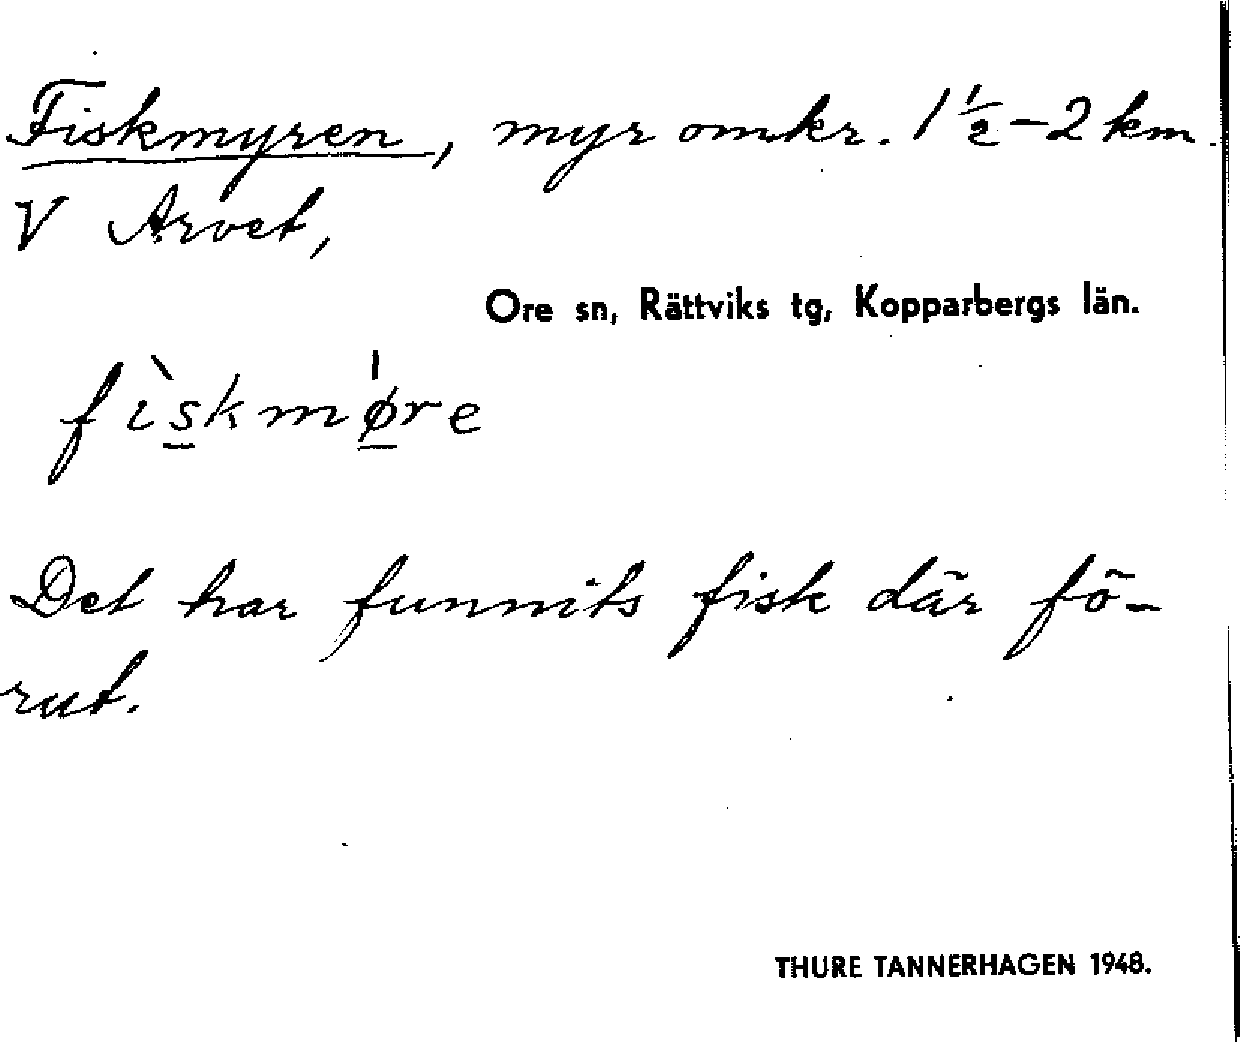 Fiskmyren, myr omkr. 1½-2 km.
V Arvet,
Ore sn, Rättviks tg, Kopparbergs län.
fìskmøre
Det har funnits fisk där fö-
rut.
THURE TANNERHAGEN 1948.